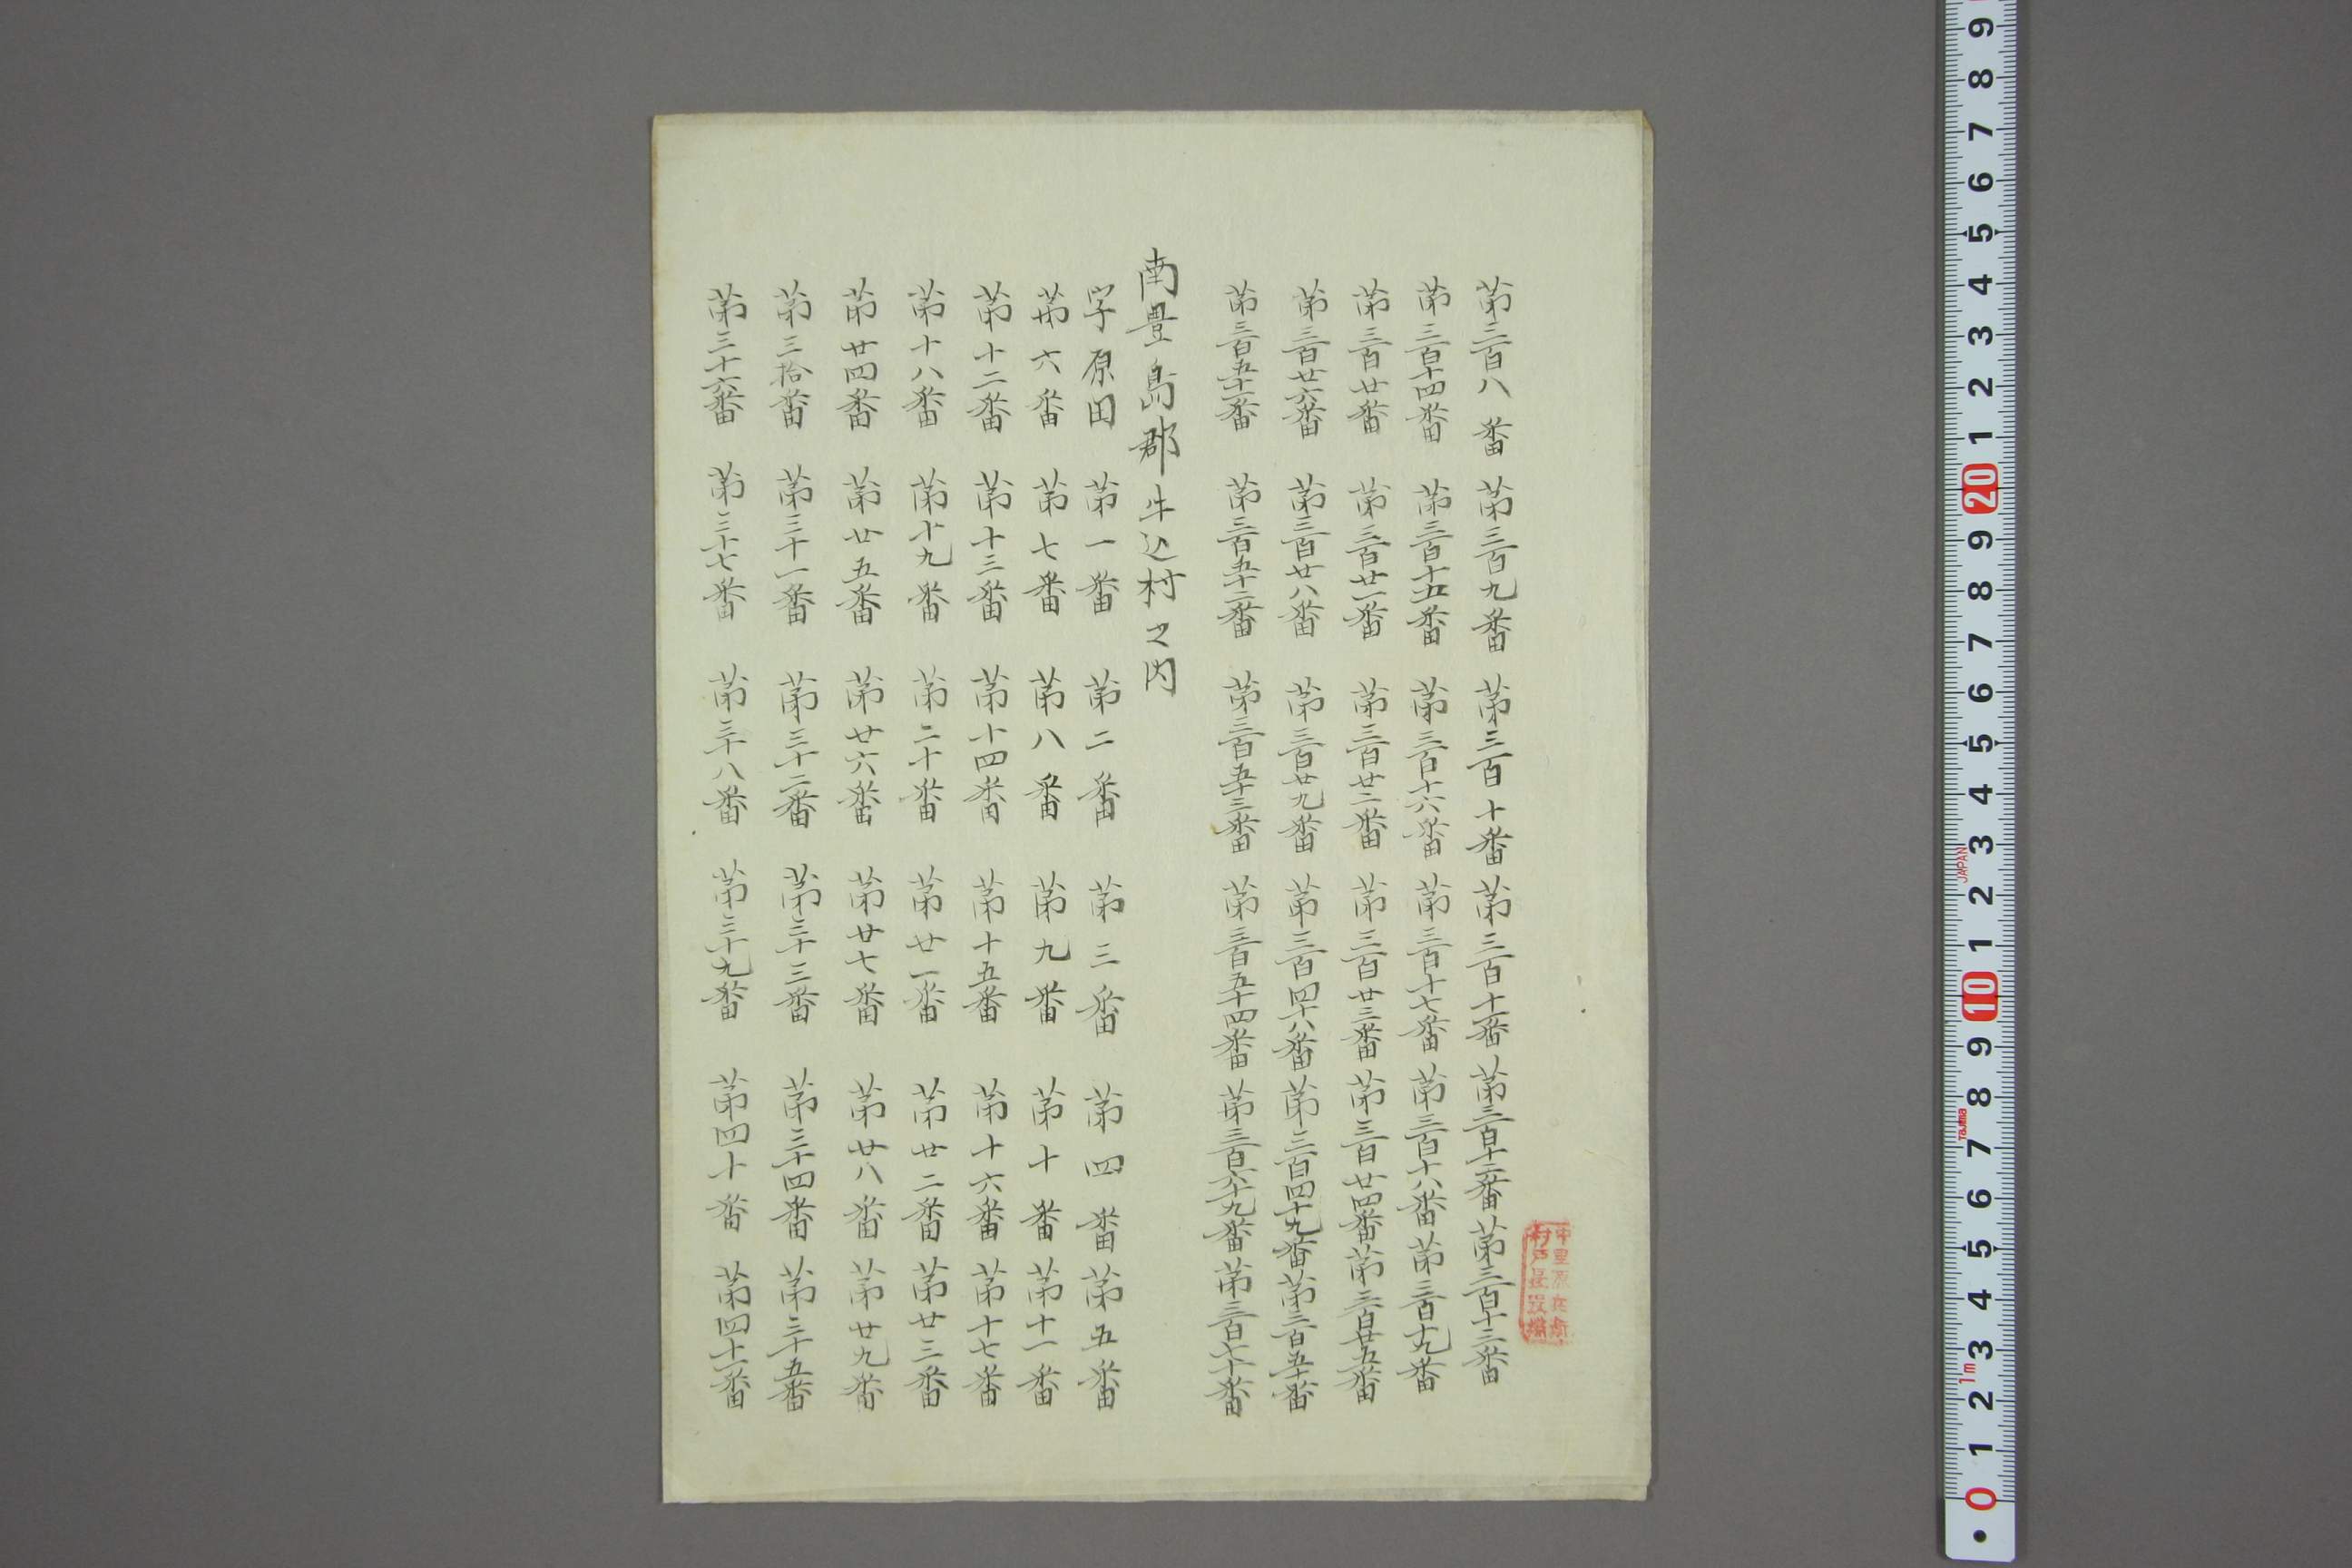 第三百八番 第三百九番 第三百十番 第三百十一番 第三百十二番 第三百十三番
第三百十四番 第三百十五番 第三百十六番 第三百十七番 第三百十八番 第三百十九番
第三百廿番 第三百廿一番 第三百廿二番 第三百廿三番 第三百廿四番 第三百廿五番
第三百廿六番 第三百廿八番 第三百廿九番 第三百四十八番 第三百四十九番 第三百五十番
第三百五十一番 第三百五十二番 第三百五十三番 第三百五十四番 第三百六十九番 第三百七十番
南豊島郡牛込村之内
字原田 第一番 第二番 第三番 第四番 第五番
第六番 第七番 第八番 第九番 第十番 第十一番
第十二番 第十三番 第十四番 第十五番 第十六番 第十七番
第十八番 第十九番 第二十番 第廿一番 第廿二番 第廿三番
第廿四番 第廿五番 第廿六番 第廿七番 第廿八番 第廿九番
第三拾番 第三十一番 第三十二番 第三十三番 第三十四番 第三十五番
第三十六番 第三十七番 第三十八番 第三十九番 第四十番 第四十一番
村戸長役場
9 8 7 6 5 4 3 2 1 20 9 8 7 6 5 4 3 2 1 10 9 8 7 6 5 4 3 2 1 0
JAPAN
Tajima
1m